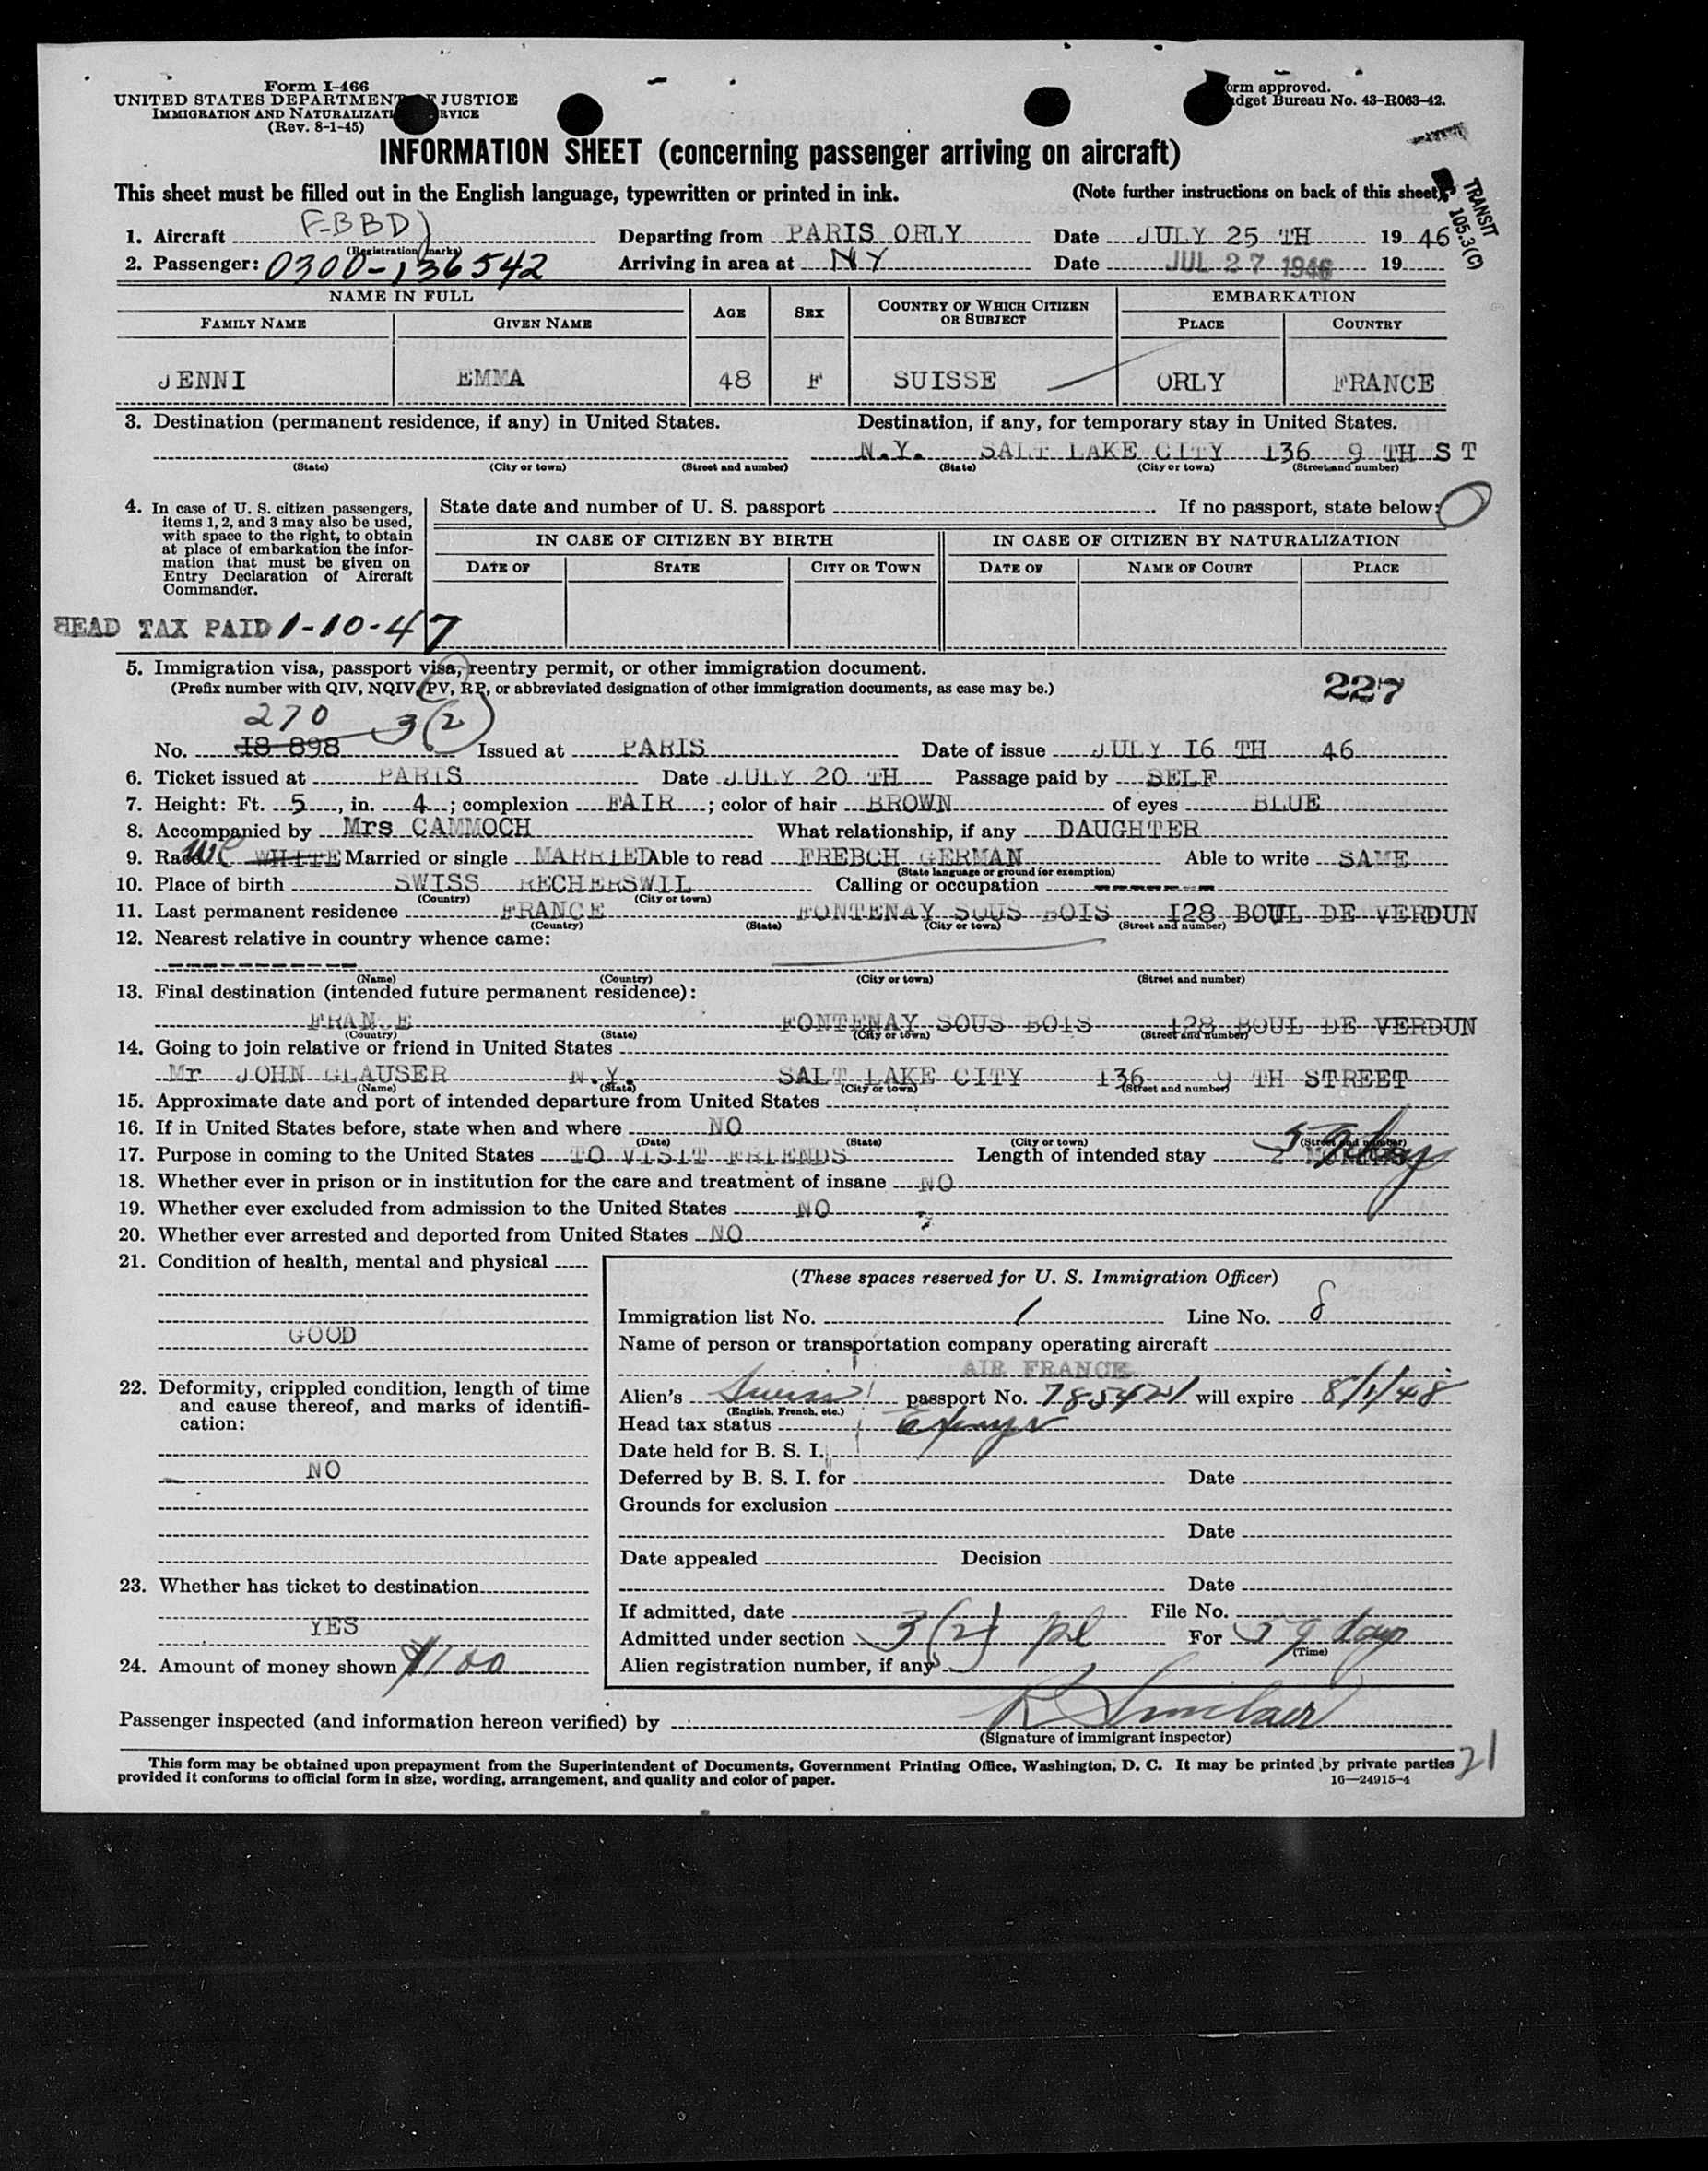 Form I-466
UNITED STATES DEPARTMENT OF JUSTICE
IMMIGRATION AND NATURALIZATI RVICE
(Rev. 8-1-45)
orm approved.
dget Bureau No. 43-R063-42.
INFORMATION SHEET (concerning passenger arriving on aircraft)
This sheet must be filled out in the English language, typewritten or printed in ink. (Note further instructions on back of this sheet)
TRANSIT
105.3(C)
1. Aircraft F-BBD Departing from PARIS ORLY Date JULY 25 TH 19 46
(Registration marks)
2. Passenger: 0300-136542 Arriving in area at NY Date JUL 27 1946 19
NAME IN FULL AGE SEX COUNTRY OF WHICH CITIZEN OR SUBJECT EMBARKATION
FAMILY NAME GIVEN NAME PLACE COUNTRY
JENNI EMMA 48 F SUISSE ORLY FRANCE
3. Destination (permanent residence, if any) in United States. Destination, if any, for temporary stay in United States.
N.Y. SALT LAKE CITY 136 9 TH S T
(State) (City or town) (Street and number) (State) (City or town) (Street and number)
4. In case of U. S. citizen passengers, items 1, 2, and 3 may also be used, with space to the right, to obtain at place of embarkation the information that must be given on Entry Declaration of Aircraft Commander.
State date and number of U. S. passport If no passport, state below:
IN CASE OF CITIZEN BY BIRTH IN CASE OF CITIZEN BY NATURALIZATION
DATE OF STATE CITY OR TOWN DATE OF NAME OF COURT PLACE
HEAD TAX PAID 1-10-47
5. Immigration visa, passport visa, reentry permit, or other immigration document.
(Prefix number with QIV, NQIV, PV, RP, or abbreviated designation of other immigration documents, as case may be.)
227
270 3(2)
No. I8 898 Issued at PARIS Date of issue JULY I6 TH 46
6. Ticket issued at PARIS Date JULY 20 TH Passage paid by SELF
7. Height: Ft. 5, in. 4; complexion FAIR; color of hair BROWN of eyes BLUE
8. Accompanied by Mrs CAMMOCH What relationship, if any DAUGHTER
9. Race WHITE Married or single MARRIED Able to read FREBCH GERMAN Able to write SAME
(State language or ground for exemption)
10. Place of birth SWISS RECHERSWIL Calling or occupation -------
(Country) (City or town)
11. Last permanent residence FRANCE FONTENAY SOUS BOIS I28 BOUL DE VERDUN
(Country) (State) (City or town) (Street and number)
12. Nearest relative in country whence came:
------------
(Name) (Country) (City or town) (Street and number)
13. Final destination (intended future permanent residence):
FRANCE FONTENAY SOUS BOIS 128 BOUL DE VERDUN
(Country) (State) (City or town) (Street and number)
14. Going to join relative or friend in United States
Mr JOHN GLAUSER N.Y. SALT LAKE CITY 136 9 TH STREET
(Name) (State) (City or town) (Street and number)
15. Approximate date and port of intended departure from United States
16. If in United States before, state when and where NO
(Date) (State) (City or town) (Street and number)
17. Purpose in coming to the United States TO VISIT FRIENDS Length of intended stay 2 MONTHS 59 days
18. Whether ever in prison or in institution for the care and treatment of insane NO
19. Whether ever excluded from admission to the United States NO
20. Whether ever arrested and deported from United States NO
21. Condition of health, mental and physical
GOOD
22. Deformity, crippled condition, length of time and cause thereof, and marks of identification:
NO
23. Whether has ticket to destination
YES
24. Amount of money shown $100
(These spaces reserved for U. S. Immigration Officer)
Immigration list No. 1 Line No. 8
Name of person or transportation company operating aircraft
AIR FRANCE
Alien's Swiss passport No. 785421 will expire 8/1/48
(English, French, etc.)
Head tax status
Date held for B. S. I.
Deferred by B. S. I. for Date
Grounds for exclusion
Date
Date appealed Decision
Date
If admitted, date File No.
Admitted under section 3(2) For 59 days
(Time)
Alien registration number, if any
Passenger inspected (and information hereon verified) by R Sinclair
(Signature of immigrant inspector)
This form may be obtained upon prepayment from the Superintendent of Documents, Government Printing Office, Washington, D. C. It may be printed by private parties
provided it conforms to official form in size, wording, arrangement, and quality and color of paper. 16—24915-4
21